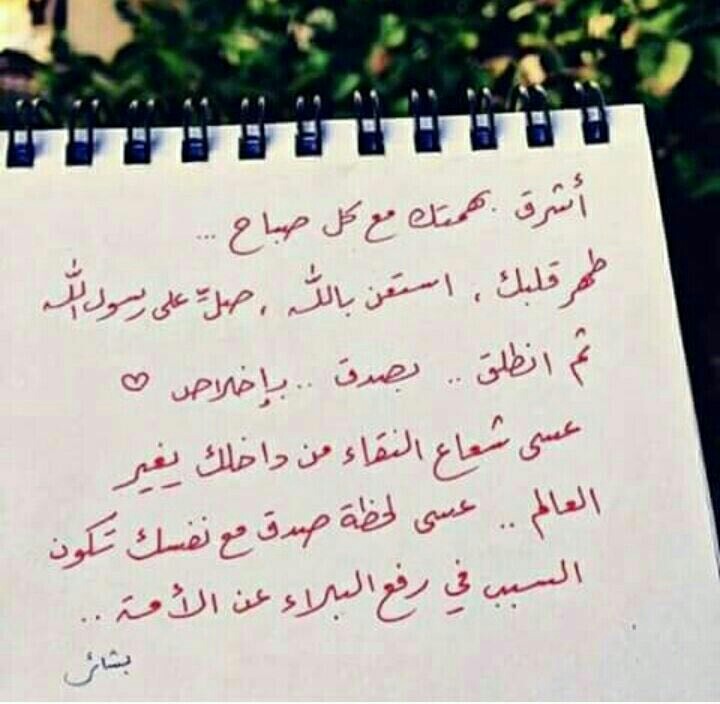 أشرق بهمتك مع كل صباح ...
طهر قلبك ، استعن بالله ، صلِّ على رسول الله
ثم انطلق .. بصدق .. بإخلاص ♡
عسى شعاع النقاء من داخلك يغير
العالم .. عسى لحظة صدق مع نفسك تكون
السبب في رفع البلاء عن الأمة ..
بشائر